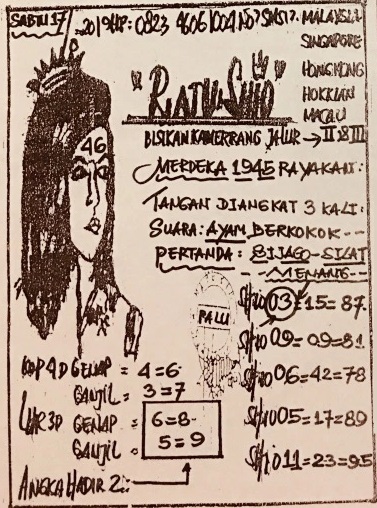 SABTU 17
2019 HP: 0823 4606 1004 NO? SMS!?. MALAYSIA
SINGAPORE
HONGKONG
HOKKIAN
MACAU
"RATU SHIO"
46
BISIKAN KAMERRANG JALUR → II & III
MERDEKA 1945 RAYAKAN:
TANGAN DIANGKAT 3 KALI:
SUARA: AYAM BERKOKOK--
PERTANDA: SIJAGO-SILAT
--MENANG--
PALU
SHIO 03=15=87
SHIO 09=09=81
SHIO 06=42=78
SHIO 05=17=89
SHIO 11=23=95
KOP 4D GENAP = 4=6
GANJIL = 3=7
3D GENAP = 6=8
GANJIL = 5=9
ANGKA HADIR 2::